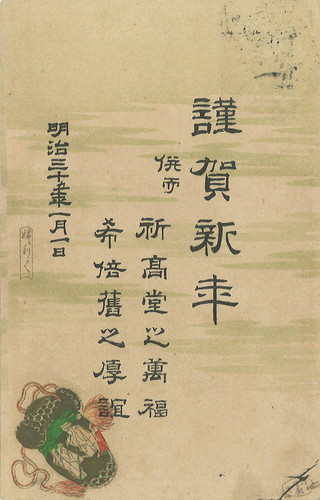 謹賀新年
併而
祈高堂之萬福
希倍舊之厚誼
明治三十五年一月一日